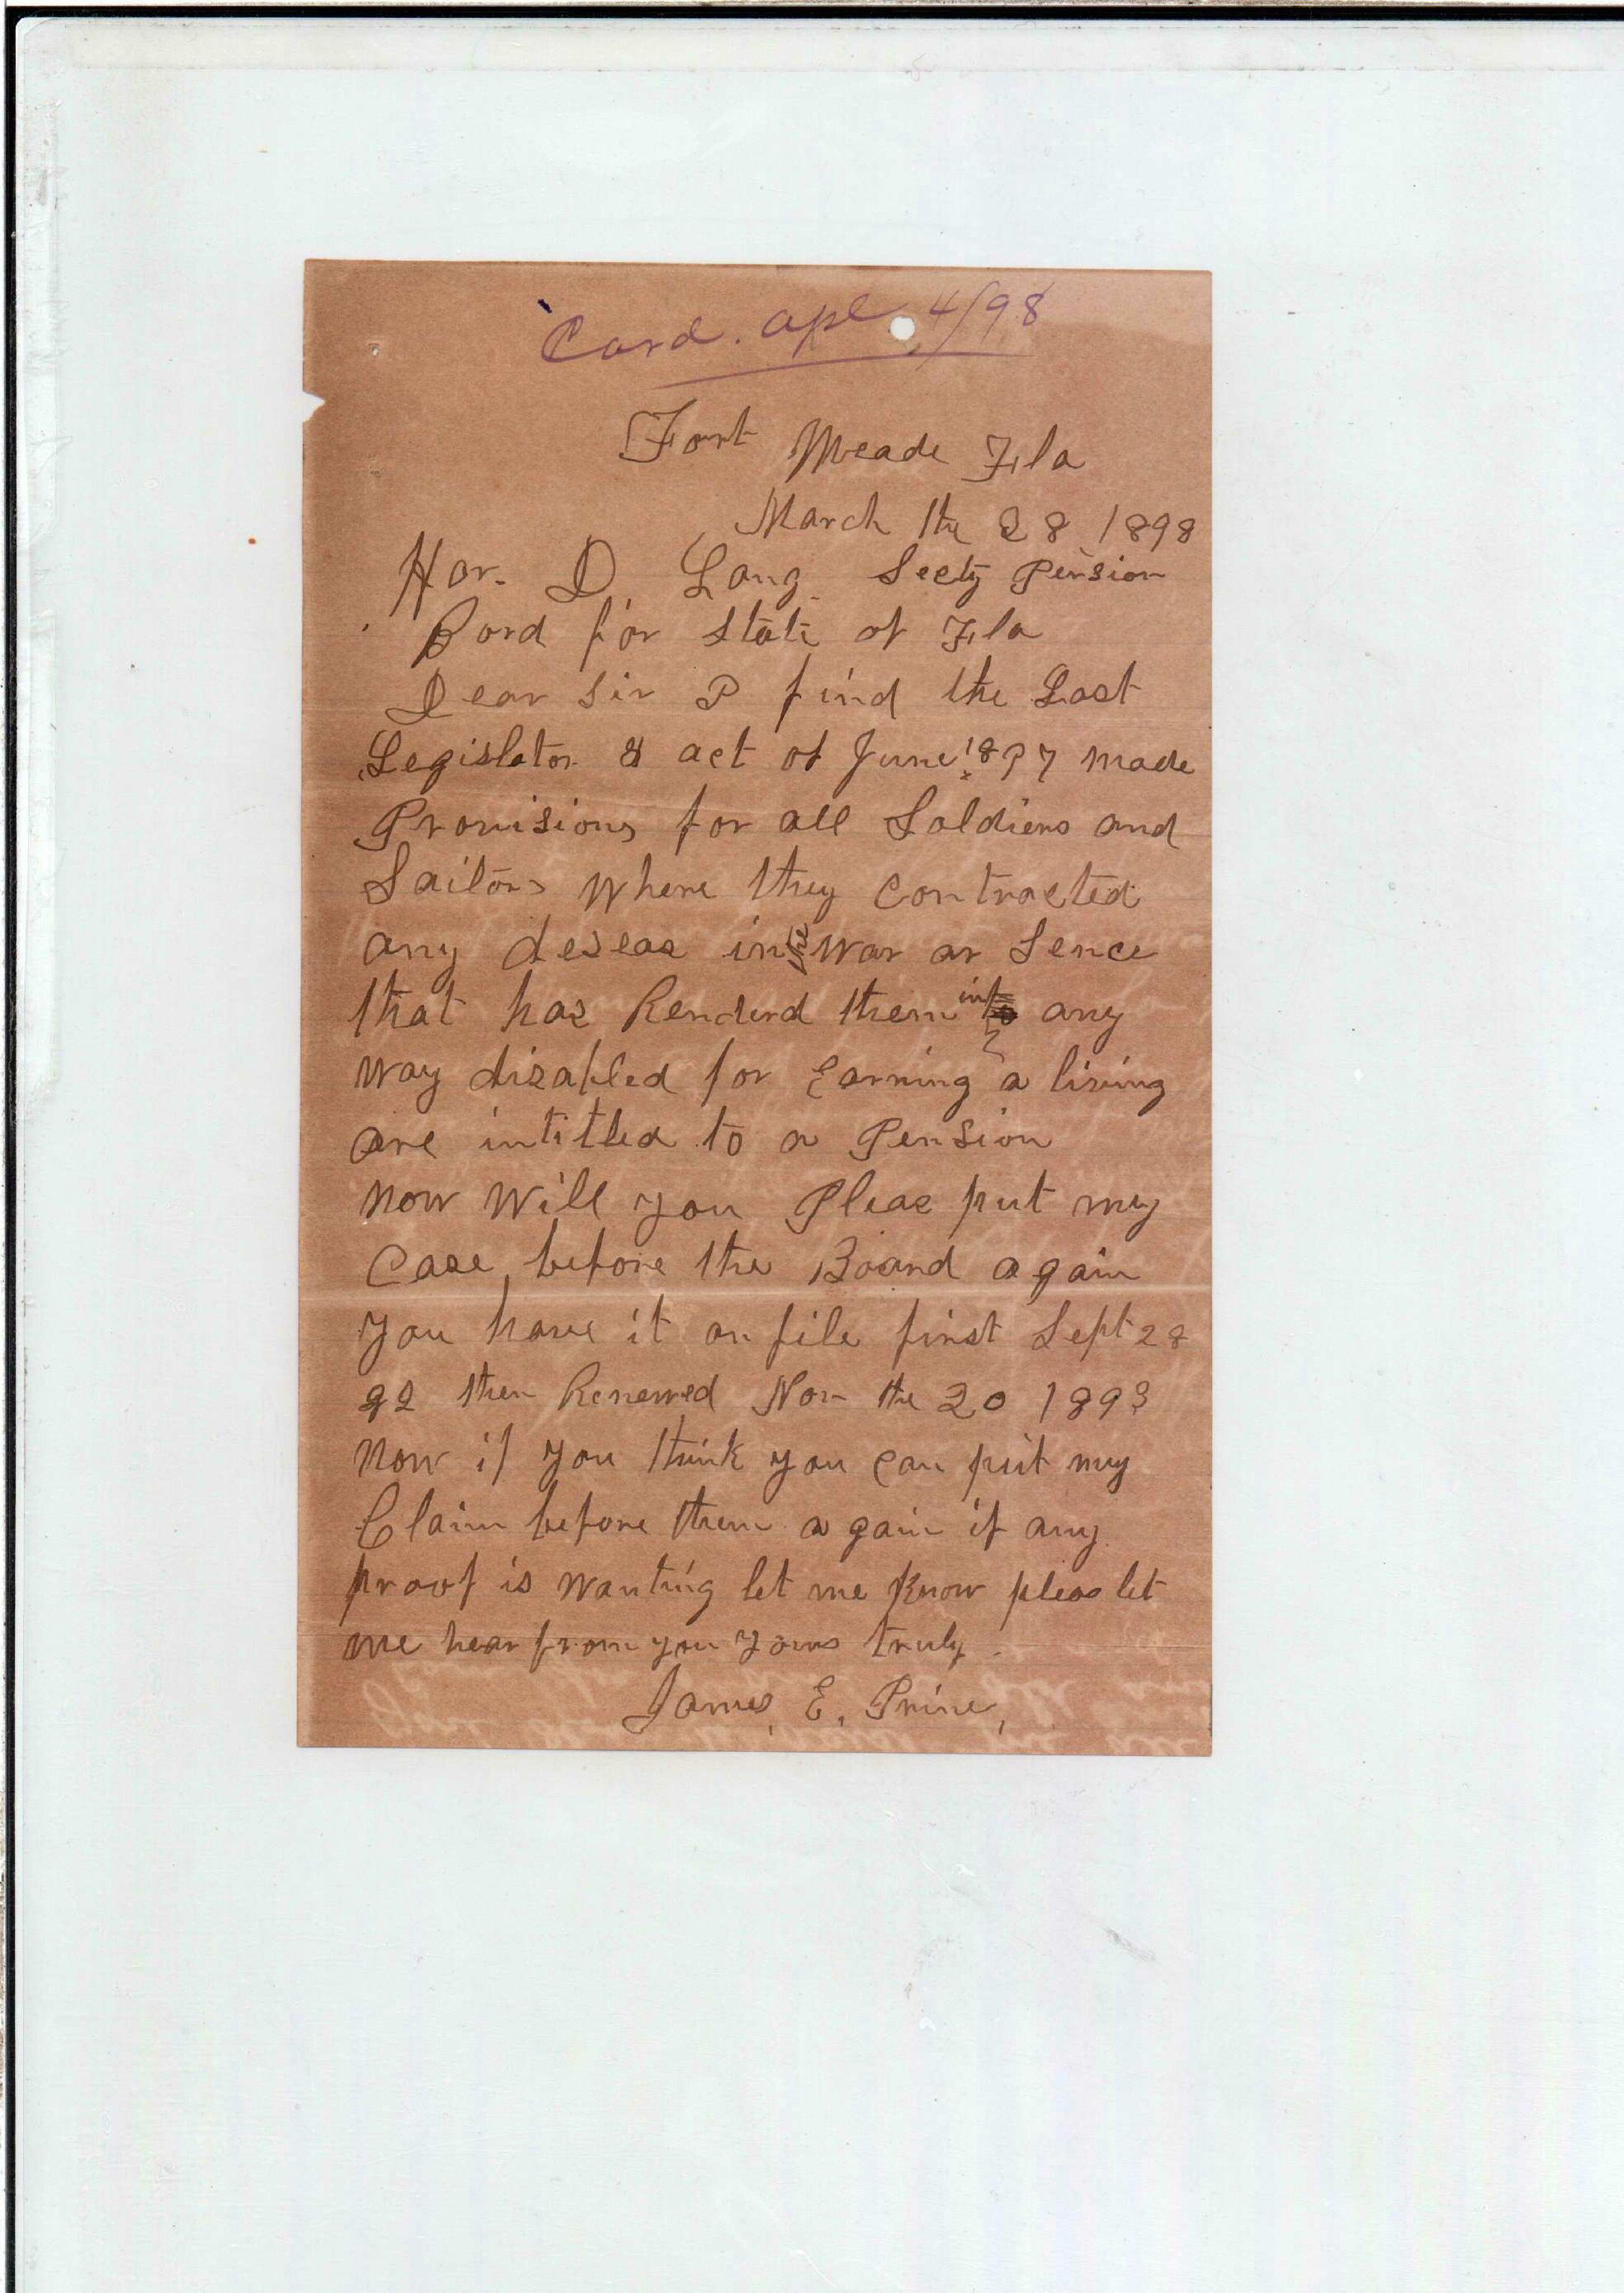 Card. Apl 4/98
Fort Meade Fla
March the 28 1898
Hon. D Lang Secty Pension
Bord for State of Fla
Dear Sir I find the Last
Legislator act of June 1897 made
Provisions for all Soldiers and
Sailors Where they contracted
any deseas in the War or Sence
that has Renderd them in any
way disabled for Earning a living
are intitled to a Pension
Now Will you Pleas put my
Case before the Board again
you have it on file first Sept 28
92 then Renewed Nov the 20 1893
Now if you think you can put my
Claim before them again if any
proof is wanting let me Know pleas let
me hear from you yours truly
James E. Prine